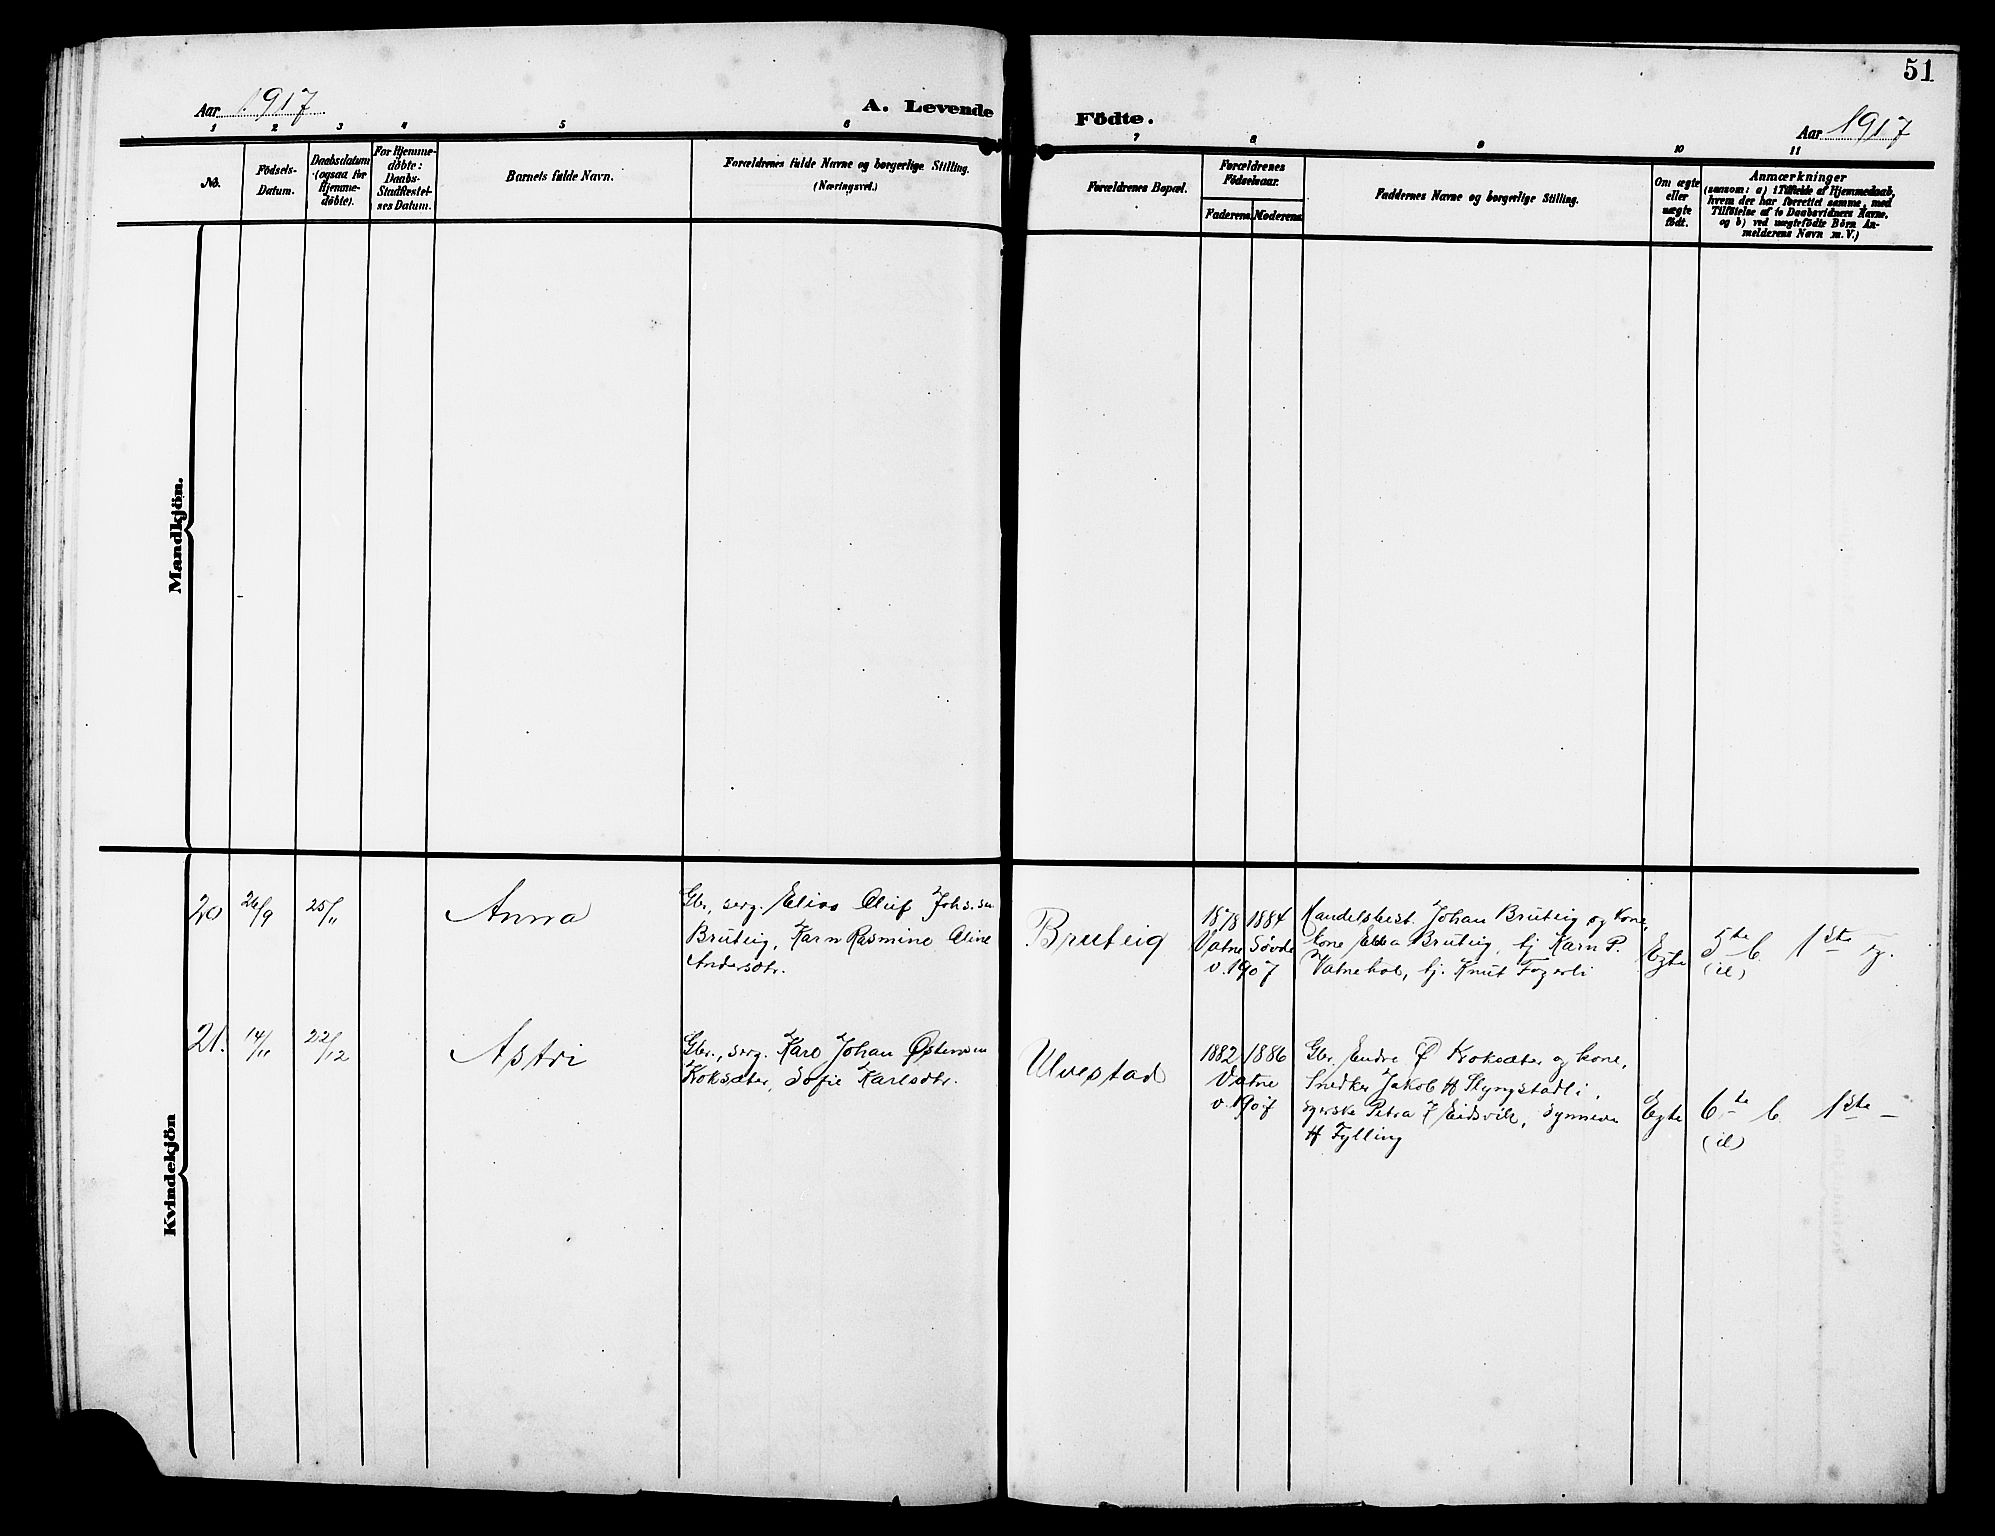 51
Aar 1917
A. Levende
Födte.
Aar 1917
1 2 3 4 5 6 7 8 9 10 11
No.
Födsels-
Datum.
Daabsdatum
(ogsaa for
Hjemme-
döbte).
For Hjemme-
döbte:
Daabs-
Stadfæstel-
ses Datum.
Barnets fulde Navn.
Forældrenes fulde Navne og borgerlige Stilling.
(Næringsvei.)
Forældrenes Bopæl.
Forældrenes
Födselsaar.
Faderens. Moderens.
Faddernes Navne og borgerlige Stilling.
Om ægte
eller
uægte
födt.
Anmærkninger
(saasom: a) i Tilfælde af Hjemmedaab,
hvem der har forrettet samme, med
Tilföielse af to Daabsvidners Navne,
og b) ved uægtefödte Börn An-
melderens Navn m. V.)
Mandkjön.
Kvindekjön
20
26/9
25/11
Anna
Gbr., serg. Elias Oluf Johs.sen
Bruteig, Karn Rasmine Oline
Andersdtr.
Bruteig
1878 1884
Vatne Søvde
v. 1907
Handelsbest. Johan Bruteig og kone,
kone Ella Bruteig, bj Karn P.
Vatnehol, bj. Knut Fogerli
Egte
5te b. 1ste eg.
(il)
21.
14/11
22/12
Astri
Gbr., serg. Karl Johan Østensen
Koksæter, Sofie Karlsdtr.
Ulvestad
1882 1886
Vatne
v. 1907
Gbr. Endre Ø Koksæter og kone,
Snedker Jakob H Slyngstadli,
syerske Petra J Eidsvik, Synneve
H Fylling
Egte
6te b. 1ste –
(il)